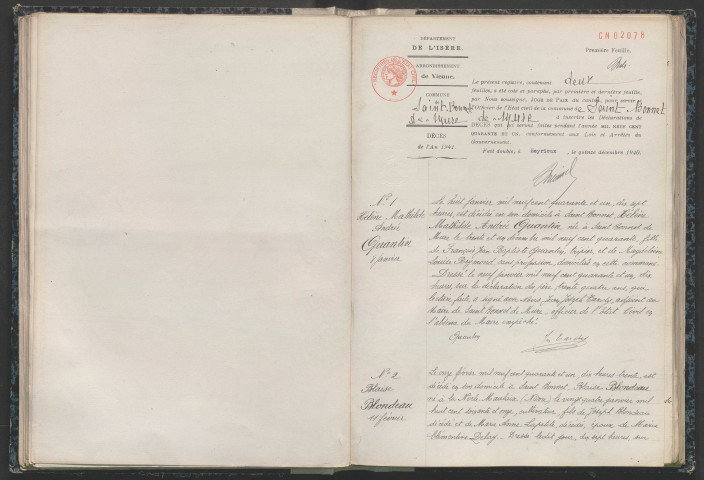 CH02078
DÉPARTEMENT
DE L'ISÈRE.
ARRONDISSEMENT
de Vienne.
COMMUNE
de Saint-Bonnet
de-Mure
DÉCÈS
de l'An 1941.
Première Feuille.
Le présent registre, contenant deux
feuillets, a été coté et paraphé, par première et dernière feuille,
par Nous soussigné, JUGE DE PAIX du canton, pour servir à
l'Officier de l'Etat civil de la commune de Saint-Bonnet
de-Mure à inscrire les Déclarations de
DÉCÈS qui lui seront faites pendant l'année MIL NEUF CENT
QUARANTE ET UN, conformément aux Lois et Arrêtés du
Gouvernement.
Fait double, à Heyrieux, le quinze décembre 1940.
N° 1
Hélène Mathilde
Andrée
Quantin
8 janvier
Le huit janvier mil neuf cent quarante et un, dix sept
heures, est décédée en son domicile à Saint Bonnet, Hélène
Mathilde Andrée Quantin née à Saint Bonnet de
Mure le trente et un décembre mil neuf cent quarante, fille
de François Jean Baptiste Quantin, et de Magdeleine
Louise Reymond, sans profession, domiciliés en cette commune
Dressé le neuf janvier mil neuf cent quarante et un, dix
heures sur la déclaration du père trente quatre ans, qui
lecture faite, a signé avec Nous, Jean Joseph Tardy, adjoint au
Maire de Saint Bonnet de Mure, officier de l'état Civil en
l'absence du Maire empêché.
Quantin
N° 2
Blaise
Blondeau
11 février
Le onze février mil neuf cent quarante et un, dix heures trente, est
décédé en son domicile à Saint Bonnet Blaise Blondeau
né à La Nocle Maulaix (Nièvre) le vingt quatre janvier mil
huit cent soixante et onze, cultivateur, fils de Joseph Blondeau
décédé et de Marie Anne Lapalut, décédée, époux de Marie
Clémentine Debay. Dressé ledit jour, dix sept heures, sur